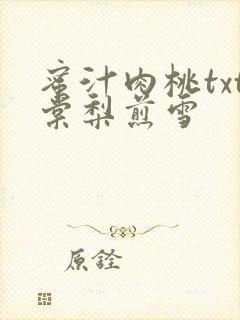 蜜汁肉桃txt
棠梨煎雪
原铨